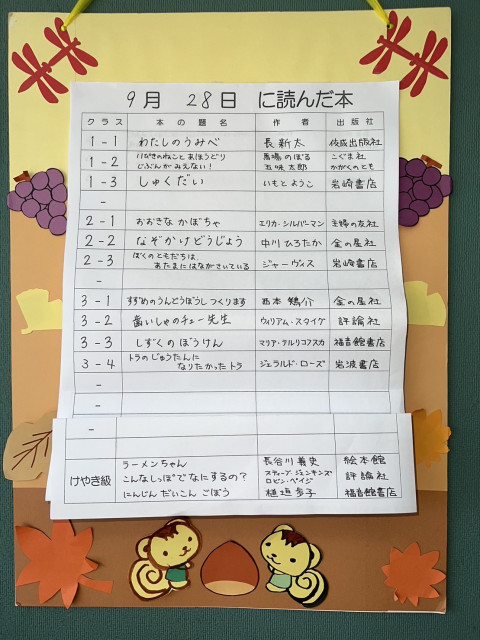 9月 28日 に読んだ本
クラス 本の題名 作者 出版社
1-1 わたしのうみべ 長新太 佼成出版社
1-2 いびきのねことあほうどり 馬場のぼる こぐま社
じぶんがみえない! 五味太郎 かがくのとも
1-3 しゅくだい いもとようこ 岩崎書店
-
2-1 おおきなかぼちゃ エリカ・シルバーマン 主婦の友社
2-2 なぞかけどうじょう 中川ひろたか 金の星社
2-3 ぼくのともだちは ジャーヴィス 岩崎書店
あたまにはながさいている
-
3-1 すずめのうんどうぼうしつくります 西本鶏介 金の星社
3-2 歯いしゃのチュー先生 ウィリアム・スタイグ 評論社
3-3 しずくのぼうけん マリア・テルリコフスカ 福音館書店
3-4 トラのじゅうたんに ジェラルド・ローズ 岩波書店
なりたかったトラ
-
-
-
けやき級 ラーメンちゃん 長谷川義史 絵本館
こんなしっぽでなにするの? スティーブ・ジェンキンズ 評論社
ロビン・ペイジ
にんじんだいこんごぼう 植垣歩子 福音館書店